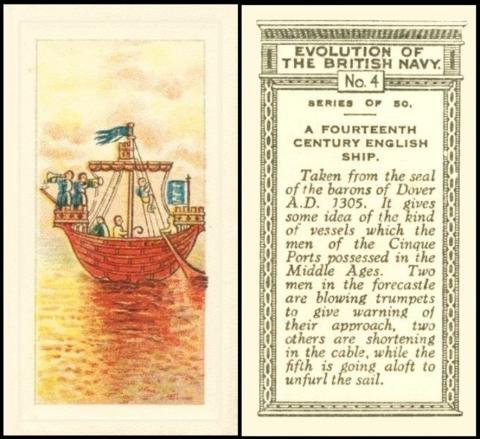 EVOLUTION OF
THE BRITISH NAVY.
No. 4
SERIES OF 50.
A FOURTEENTH
CENTURY ENGLISH
SHIP.
Taken from the seal
of the barons of Dover
A.D. 1305. It gives
some idea of the kind
of vessels which the
men of the Cinque
Ports possessed in the
Middle Ages. Two
men in the forecastle
are blowing trumpets
to give warning of
their approach, two
others are shortening
in the cable, while the
fifth is going aloft to
unfurl the sail.